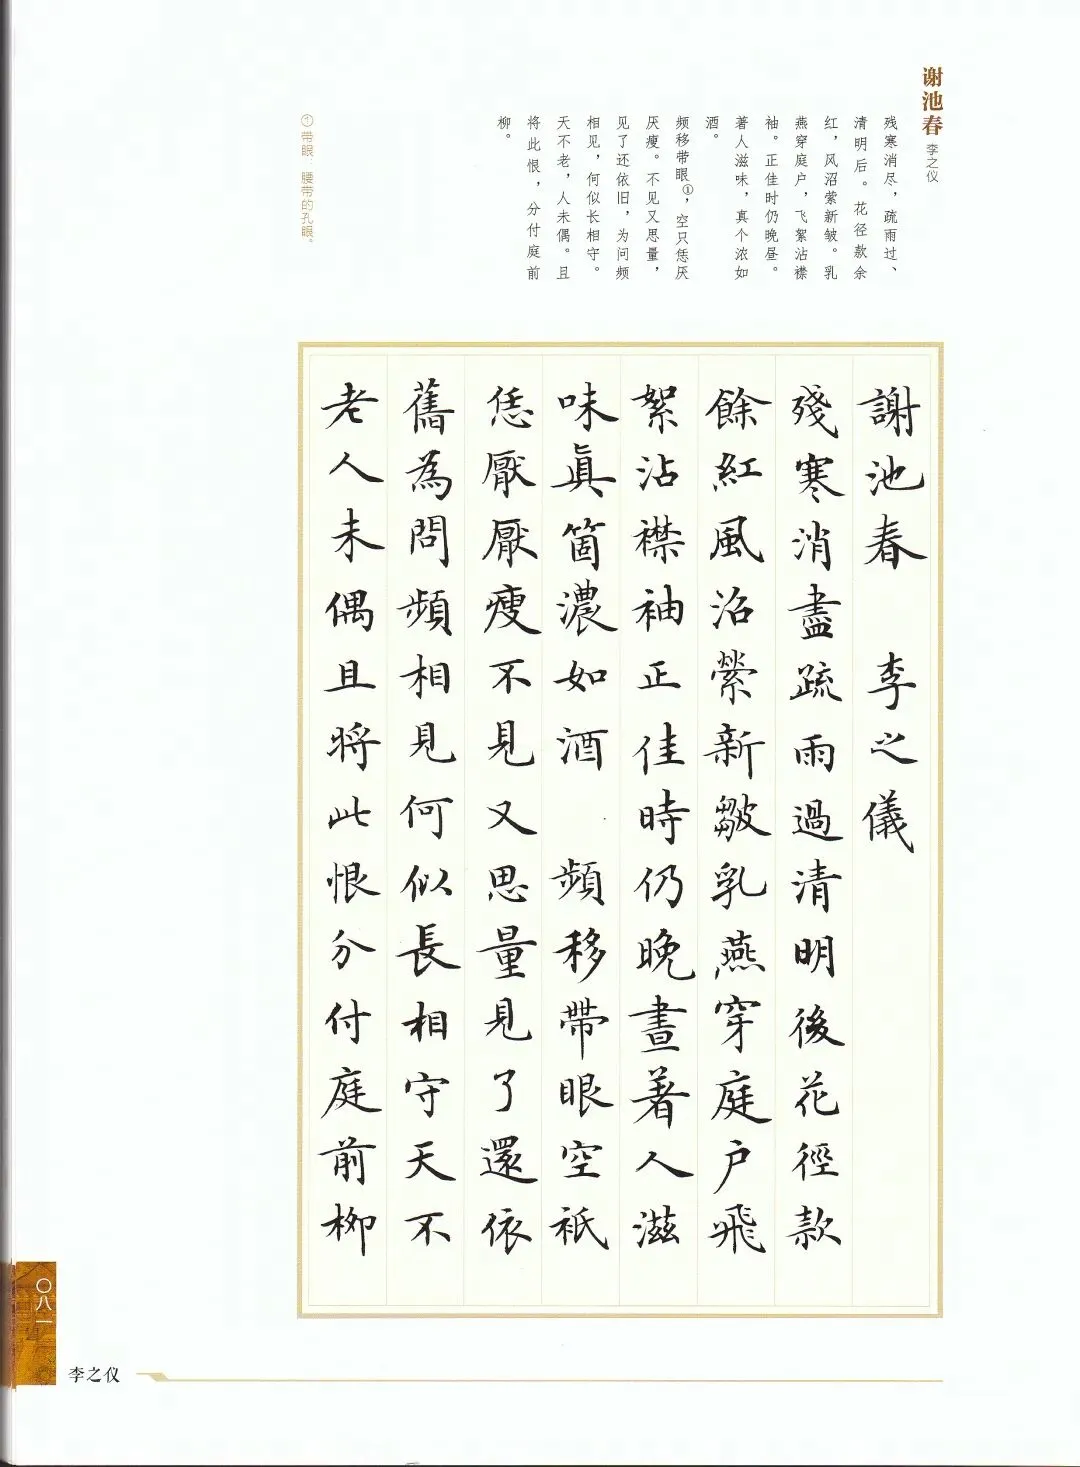 谢池春
李之仪
残寒消尽，疏雨过、
清明后。花径款余
红，风沼萦新皱。乳
燕穿庭户，飞絮沾襟
袖。正佳时仍晚昼。
著人滋味，真个浓如
酒。
频移带眼①，空只恁厌
厌瘦。不见又思量，
见了还依旧，为问频
相见，何似长相守。
天不老，人未偶。且
将此恨，分付庭前
柳。
①带眼：腰带的孔眼。
謝池春 李之儀
殘寒消盡疏雨過清明後花徑款
餘紅風沼縈新皺乳燕穿庭户飛
絮沾襟袖正佳時仍晚晝著人滋
味真箇濃如酒 頻移帶眼空祇
恁厭厭瘦不見又思量見了還依
舊為問頻相見何似長相守天不
老人未偶且將此恨分付庭前柳
〇八一
李之仪